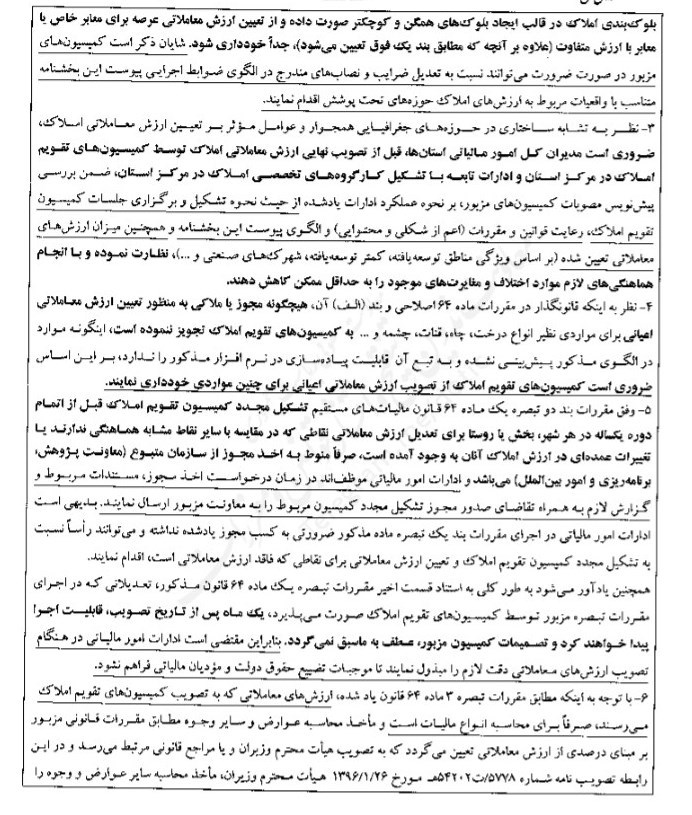 بلوک‌بندی املاک در قالب ایجاد بلوک‌های همگن و کوچکتر صورت داده و از تعیین ارزش معاملاتی عرصه برای معابر خاص یا
معابر با ارزش متفاوت (علاوه بر آنچه که مطابق بند یک فوق تعیین می‌شود)، جداً خودداری شود. شایان ذکر است کمیسیون‌های
مزبور در صورت ضرورت می‌توانند نسبت به تعدیل ضرایب و نصاب‌های مندرج در الگوی ضوابط اجرایی پیوست این بخشنامه
متناسب با واقعیات مربوط به ارزش‌های املاک حوزه‌های تحت پوشش اقدام نمایند.
۳- نظر به تشابه ساختاری در حوزه‌های جغرافیایی همجوار و عوامل مؤثر بر تعیین ارزش معاملاتی املاک،
ضروری است مدیران کل امور مالیاتی استان‌ها، قبل از تصویب نهایی ارزش معاملاتی املاک توسط کمیسیون‌های تقویم
املاک در مرکز استان و ادارات تابعه با تشکیل کارگروه‌های تخصصی املاک در مرکز استان، ضمن بررسی
پیش‌نویس مصوبات کمیسیون‌های مزبور، بر نحوه عملکرد ادارات یادشده از حیث نحوه تشکیل و برگزاری جلسات کمیسیون
تقویم املاک، رعایت قوانین و مقررات (اعم از شکلی و محتوایی) و الگوی پیوست این بخشنامه و همچنین میزان ارزش‌های
معاملاتی تعیین شده (بر اساس ویژگی مناطق توسعه‌یافته، کمتر توسعه‌یافته، شهرک‌های صنعتی و ...)، نظارت نموده و با انجام
هماهنگی‌های لازم موارد اختلاف و مغایرت‌های موجود را به حداقل ممکن کاهش دهند.
۴- نظر به اینکه قانونگذار در مقررات ماده ۶۴ اصلاحی و بند (الف) آن، هیچگونه مجوز یا ملاکی به منظور تعیین ارزش معاملاتی
اعیانی برای مواردی نظیر انواع درخت، چاه، قنات، چشمه و ... به کمیسیون‌های تقویم املاک تجویز ننموده است، اینگونه موارد
در الگوی مذکور پیش‌بینی نشده و به تبع آن قابلیت پیاده‌سازی در نرم افزار مذکور را ندارد، بر این اساس
ضروری است کمیسیون‌های تقویم املاک از تصویب ارزش معاملاتی اعیانی برای چنین مواردی خودداری نمایند.
۵- وفق مقررات بند دو تبصره یک ماده ۶۴ قانون مالیات‌های مستقیم تشکیل مجدد کمیسیون تقویم املاک قبل از اتمام
دوره یکساله در هر شهر، بخش یا روستا برای تعدیل ارزش معاملاتی نقاطی که در مقایسه با سایر نقاط مشابه هماهنگی ندارند یا
تغییرات عمده‌ای در ارزش املاک آنان به وجود آمده است، صرفاً منوط به اخذ مجوز از سازمان متبوع (معاونت پژوهش،
برنامه‌ریزی و امور بین‌الملل) می‌باشد و ادارات امور مالیاتی موظف‌اند در زمان درخواست اخذ مجوز، مستندات مربوط و
گزارش لازم به همراه تقاضای صدور مجوز تشکیل مجدد کمیسیون مربوط را به معاونت مزبور ارسال نمایند. بدیهی است
ادارات امور مالیاتی در اجرای مقررات بند یک تبصره ماده مذکور ضرورتی به کسب مجوز یادشده نداشته و می‌توانند رأساً نسبت
به تشکیل مجدد کمیسیون تقویم املاک و تعیین ارزش معاملاتی برای نقاطی که فاقد ارزش معاملاتی است، اقدام نمایند.
همچنین یادآور می‌شود به طور کلی به استناد قسمت اخیر مقررات تبصره یک ماده ۶۴ قانون مذکور، تعدیلاتی که در اجرای
مقررات تبصره مزبور توسط کمیسیون‌های تقویم املاک صورت می‌پذیرد، یک ماه پس از تاریخ تصویب، قابلیت اجرا
پیدا خواهند کرد و تصمیمات کمیسیون مزبور، عطف به ماسبق نمی‌گردد. بنابراین مقتضی است ادارات امور مالیاتی در هنگام
تصویب ارزش‌های معاملاتی دقت لازم را مبذول نمایند تا موجبات تضییع حقوق دولت و مؤدیان مالیاتی فراهم نشود.
۶- با توجه به اینکه مطابق مقررات تبصره ۳ ماده ۶۴ قانون یاد شده، ارزش‌های معاملاتی که به تصویب کمیسیون‌های تقویم املاک
می‌رسند، صرفاً برای محاسبه انواع مالیات است و مأخذ محاسبه عوارض و سایر وجوه مطابق مقررات قانونی مزبور
بر مبنای درصدی از ارزش معاملاتی تعیین می‌گردد که به تصویب هیأت محترم وزیران و یا مراجع قانونی مرتبط می‌رسد و در این
رابطه تصویب نامه شماره ۵۷۷۸/ت۵۴۲۰۲هـ مورخ ۱۳۹۶/۱/۲۶ هیأت محترم وزیران، مأخذ محاسبه سایر عوارض و وجوه را